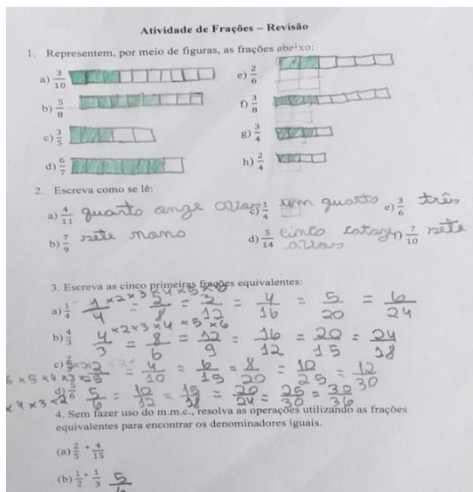 Atividade de Frações – Revisão
1. Representem, por meio de figuras, as frações abaixo:
a) 3/10 e) 2/6
b) 5/8 f) 3/8
c) 3/5 g) 3/4
d) 6/7 h) 2/4
2. Escreva como se lê:
a) 4/11 quarto onze avos c) 1/4 um quarto e) 3/6 três
b) 7/9 sete nono d) 5/14 cinco f) 7/10 sete
avos
3. Escreva as cinco primeiras frações equivalentes:
×2 ×3 ×4 ×5 ×6
a) 1/4 1/4 = 2/8 = 3/12 = 4/16 = 5/20 = 6/24
×2 ×3 ×4 ×5 ×6
b) 4/3 4/3 = 8/6 = 12/9 = 16/12 = 20/15 = 24/18
c) 2/5 = 4/10 = 6/15 = 8/20 = 10/25 = 12/30
6 ×5 ×4 ×3
d) 5/6 5/6 = 10/12 = 15/18 = 20/24 = 25/30 = 30/36
×4 ×3 ×2
4. Sem fazer uso do m.m.c., resolva as operações utilizando as frações
equivalentes para encontrar os denominadores iguais.
(a) 2/5 + 4/15
(b) 1/2 + 1/3 5/6